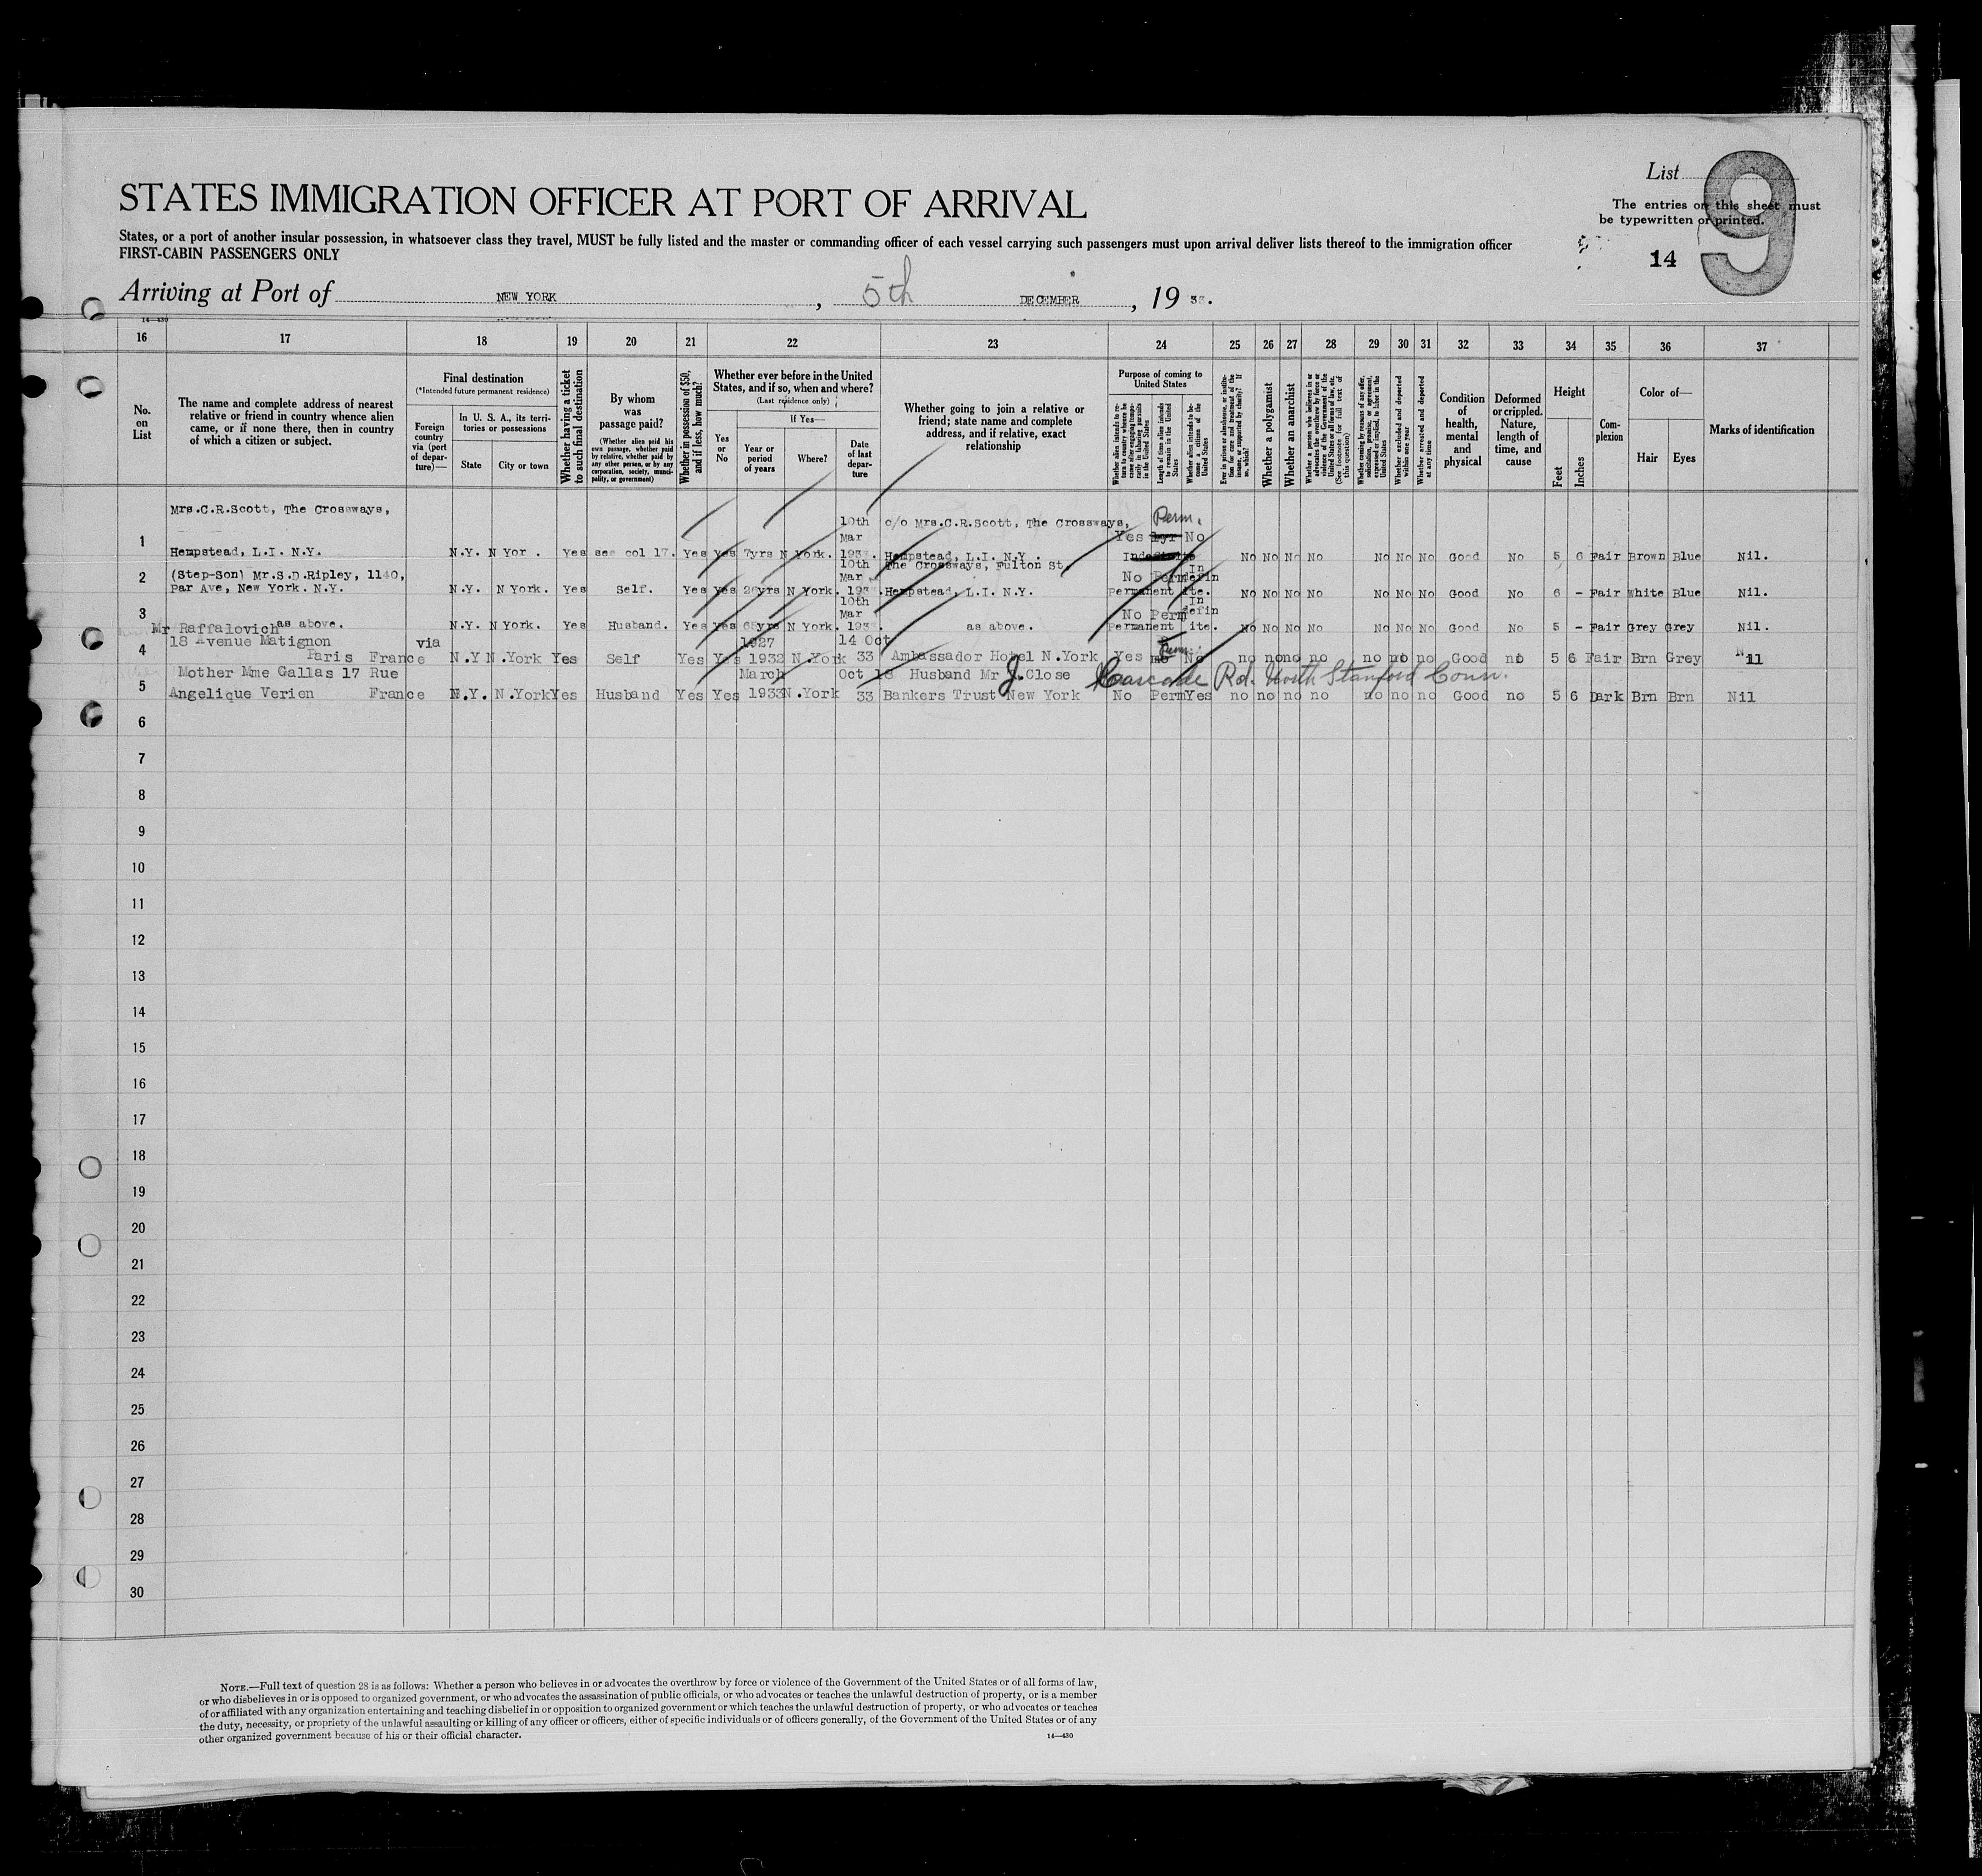 List
9
The entries on this sheet must
be typewritten or printed.
14
STATES IMMIGRATION OFFICER AT PORT OF ARRIVAL
States, or a port of another insular possession, in whatsoever class they travel, MUST be fully listed and the master or commanding officer of each vessel carrying such passengers must upon arrival deliver lists thereof to the immigration officer
FIRST-CABIN PASSENGERS ONLY
Arriving at Port of NEW YORK, 5th DECEMBER, 19 33.
14—430
16 17 18 19 20 21 22 23 24 25 26 27 28 29 30 31 32 33 34 35 36 37
No. on List
The name and complete address of nearest relative or friend in country whence alien came, or if none there, then in country of which a citizen or subject.
Final destination
(*Intended future permanent residence)
Foreign country via (port of departure)—
In U. S. A., its territories or possessions
State
City or town
Whether having a ticket to such final destination
By whom was passage paid?
(Whether alien paid his own passage, whether paid by relative, whether paid by any other person, or by any corporation, society, municipality, or government)
Whether in possession of $50, and if less, how much?
Whether ever before in the United States, and if so, when and where?
(Last residence only)
Yes or No
If Yes—
Year or period of years
Where?
Date of last departure
Whether going to join a relative or friend; state name and complete address, and if relative, exact relationship
Purpose of coming to United States
Whether alien intends to return to country whence he came after engaging temporarily in laboring pursuits in the United States
Length of time alien intends to remain in the United States
Whether alien intends to become a citizen of the United States
Ever in prison or almshouse, or institution for care and treatment of the insane, or supported by charity? If so, which?
Whether a polygamist
Whether an anarchist
Whether a person who believes in or advocates the overthrow by force or violence of the Government of the United States or all forms of law, etc. (See footnote for full text of this question)
Whether coming by reason of any offer, solicitation, promise, or agreement, express or implied, to labor in the United States
Whether excluded and deported within one year
Whether arrested and deported at any time
Condition of health, mental and physical
Deformed or crippled. Nature, length of time, and cause
Height
Feet
Inches
Complexion
Color of—
Hair
Eyes
Marks of identification
Mrs.C.R.Scott, The Crossways, 10th Mar c/o Mrs.C.R.Scott, The Crossways, Perm. Yes 1yr No
1 Hempstead, L.I. N.Y. N.Y. N Yor . Yes see col 17. Yes Yes 7yrs N York. 1933. Hempstead, L.I. N.Y. Indefinite No No No No No No No Good No 5 6 Fair Brown Blue Nil.
(Step-Son) Mr.S.D.Ripley, 1140, 10th Mar The Crossways, Fulton St, No Perm Indefin
2 Par Ave, New York. N.Y. N.Y. N York. Yes Self. Yes Yes 26yrs N York. 1933. Hempstead, L.I. N.Y. Permanent ite. No No No No No No No Good No 6 - Fair White Blue Nil.
10th Mar No Perm Indefin
3 as above. N.Y. N York. Yes Husband. Yes Yes 65yrs N York. 1933. as above. Permanent ite. No No No No No No No Good No 5 - Fair Grey Grey Nil.
Mr Raffalovich
18 Avenue Matignon via 1927 14 Oct Perm.
4 Paris France N.Y N.York Yes Self Yes Yes 1932 N.York 33 Ambassador Hotel N.York Yes No no no no no no no no Good no 5 6 Fair Brn Grey Nil
Mother Mme Gallas 17 Rue March Oct 18 Husband Mr J.Close Cascade Rd. North Stanford Conn.
5 Angelique Verien France N.Y. N.York Yes Husband Yes Yes 1933 N.York 33 Bankers Trust New York No Perm Yes no no no no no no no Good no 5 6 Dark Brn Brn Nil
6
7
8
9
10
11
12
13
14
15
16
17
18
19
20
21
22
23
24
25
26
27
28
29
30
NOTE.—Full text of question 28 is as follows: Whether a person who believes in or advocates the overthrow by force or violence of the Government of the United States or of all forms of law,
or who disbelieves in or is opposed to organized government, or who advocates the assassination of public officials, or who advocates or teaches the unlawful destruction of property, or is a member
of or affiliated with any organization entertaining and teaching disbelief in or opposition to organized government or which teaches the unlawful destruction of property, or who advocates or teaches
the duty, necessity, or propriety of the unlawful assaulting or killing of any officer or officers, either of specific individuals or of officers generally, of the Government of the United States or of any
other organized government because of his or their official character.
14—430